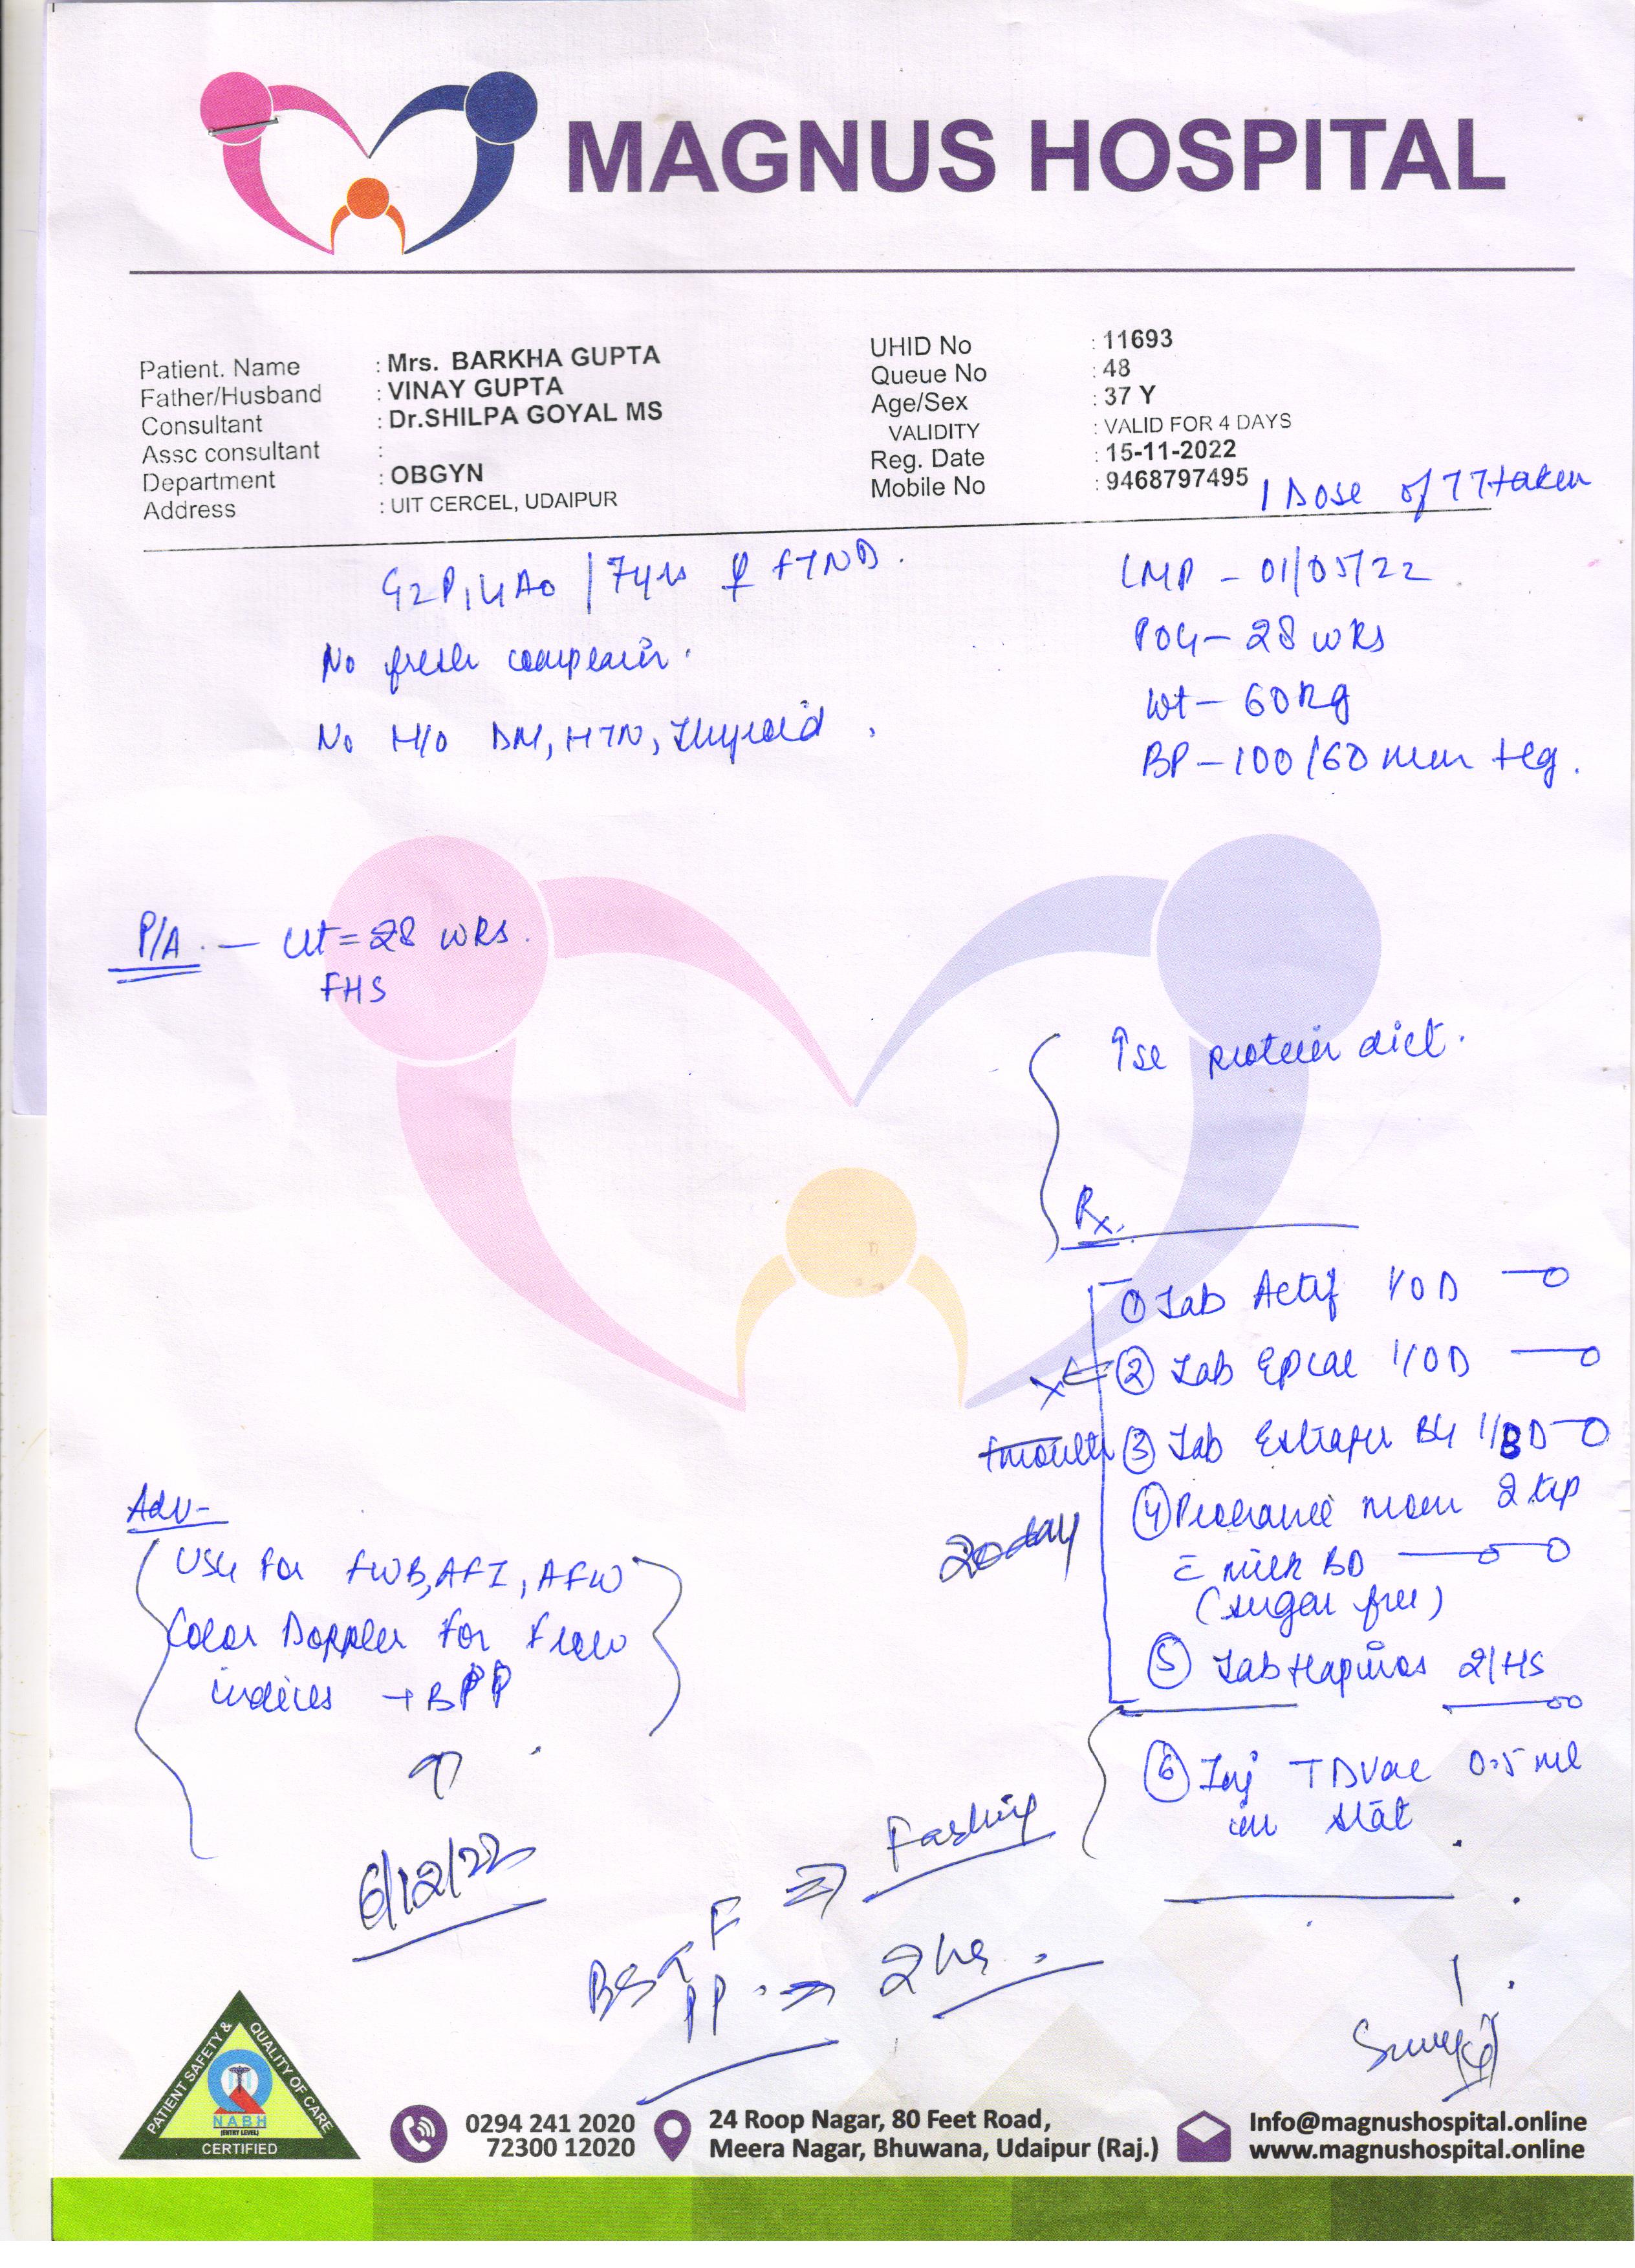 MAGNUS HOSPITAL
Patient. Name : Mrs. BARKHA GUPTA
Father/Husband : VINAY GUPTA
Consultant : Dr.SHILPA GOYAL MS
Assc consultant :
Department : OBGYN
Address : UIT CERCEL, UDAIPUR
UHID No : 11693
Queue No : 48
Age/Sex : 37 Y
VALIDITY : VALID FOR 4 DAYS
Reg. Date : 15-11-2022
Mobile No : 9468797495
1 Dose of TT taken
G2P1L1A0 / 7yrs ♀ FTND.
No fresh complain.
No H/O DM, HTN, Thyroid.
LMP - 01/05/22
POG - 28 wks
Wt - 60 kg
BP - 100/60 mm Hg.
P/A. - Ut = 28 wks.
FHS
↑se protein diet.
Rx.
① Tab Actif 1/OD
② Tab Epcal 1/OD
③ Tab 1/BD
④ 2 tsp
c̄ milk BD
(sugar free)
⑤ Tab 2/HS
⑥ Inj TDVac 0.5 ml
im stat
x
1 month
20 day
Adv-
USG For FWB, AFI, AFW
Color Doppler For Flow
indices + BPP
↑
6/12/22
BS F ⇒ Fasting
PP. → 2 hs.
PATIENT SAFETY & QUALITY OF CARE
NABH
(ENTRY LEVEL)
CERTIFIED
0294 241 2020
72300 12020
24 Roop Nagar, 80 Feet Road,
Meera Nagar, Bhuwana, Udaipur (Raj.)
Info@magnushospital.online
www.magnushospital.online